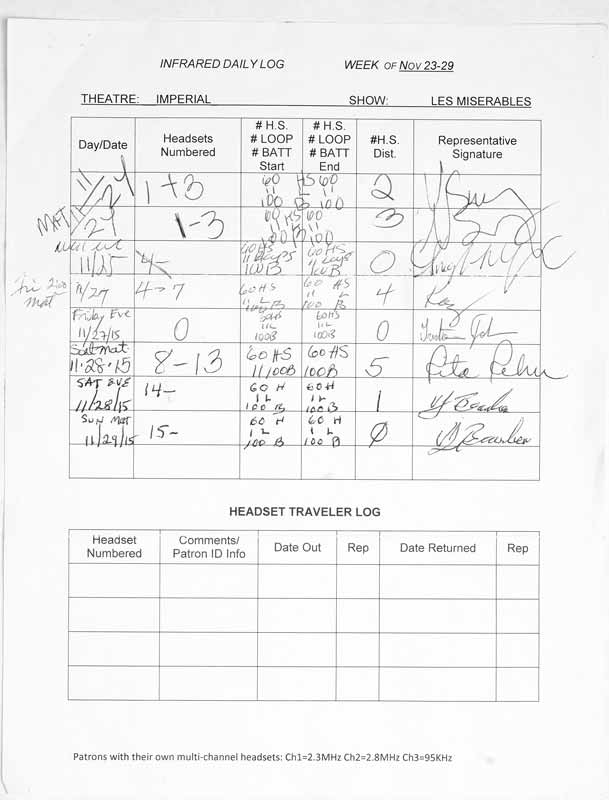 INFRARED DAILY LOG WEEK OF NOV 23-29
THEATRE: IMPERIAL SHOW: LES MISERABLES
Day/Date Headsets Numbered # H.S. # LOOP # BATT Start # H.S. # LOOP # BATT End #H.S. Dist. Representative Signature
11/24 1+3 60 HS 60
11 L 11
100 B 100 2
MAT 11/24 1-3 60 HS 60
11 11
100 B 100 3
11/25 4- 60HS 11 Loops 100B 60 HS 11 Loops 100B 0
Fri 2:00 Mat 11/27 4-7 60HS 11 L 100B 60 HS 11 L 100 B 4 Ray
Friday Eve
11/27/15 0 60HS 11L 100B 60HS 11L 100B 0
Sat Mat
11.28.15 8-13 60HS 11/100B 60HS 100B 5 Rita
SAT EVE
11/28/15 14- 60 H 1 L 100 B 60 H 1 L 100 B 1
SUN MAT
11/29/15 15- 60 H 1 L 100 B 60 H 1 L 100 B 0
HEADSET TRAVELER LOG
Headset Numbered Comments/ Patron ID Info Date Out Rep Date Returned Rep
Patrons with their own multi-channel headsets: Ch1=2.3MHz Ch2=2.8MHz Ch3=95KHz